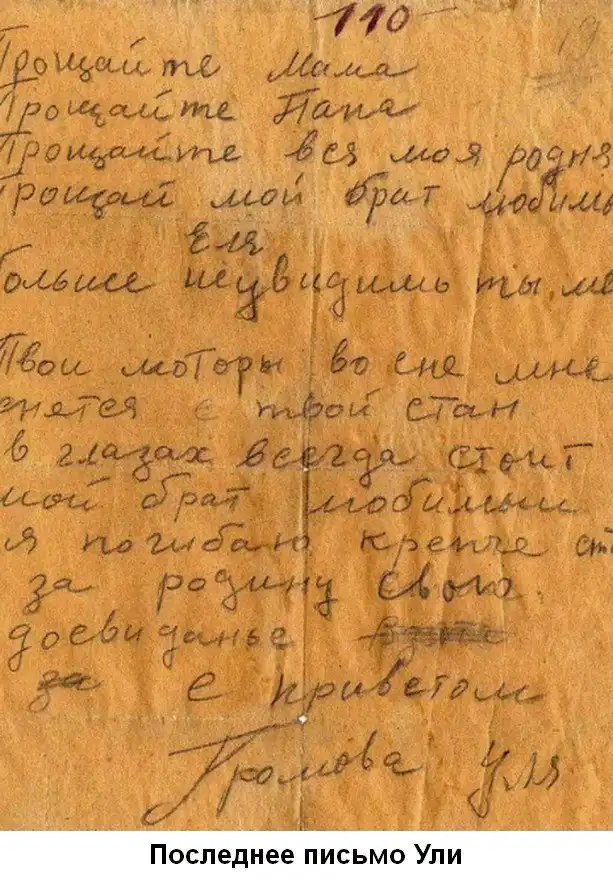 110
19
Прощайте Мама
Прощайте Папа
Прощайте вся моя родня
Прощай мой брат любимы
Еля
больше неувидишь ты ме
Твои моторы во сне мне
снятся
твой стан
в глазах всегда стоит
мой брат любимый
я погибаю крепче ст
за родину свою
досвиданье
за С приветом
Громова Уля
Последнее письмо Ули